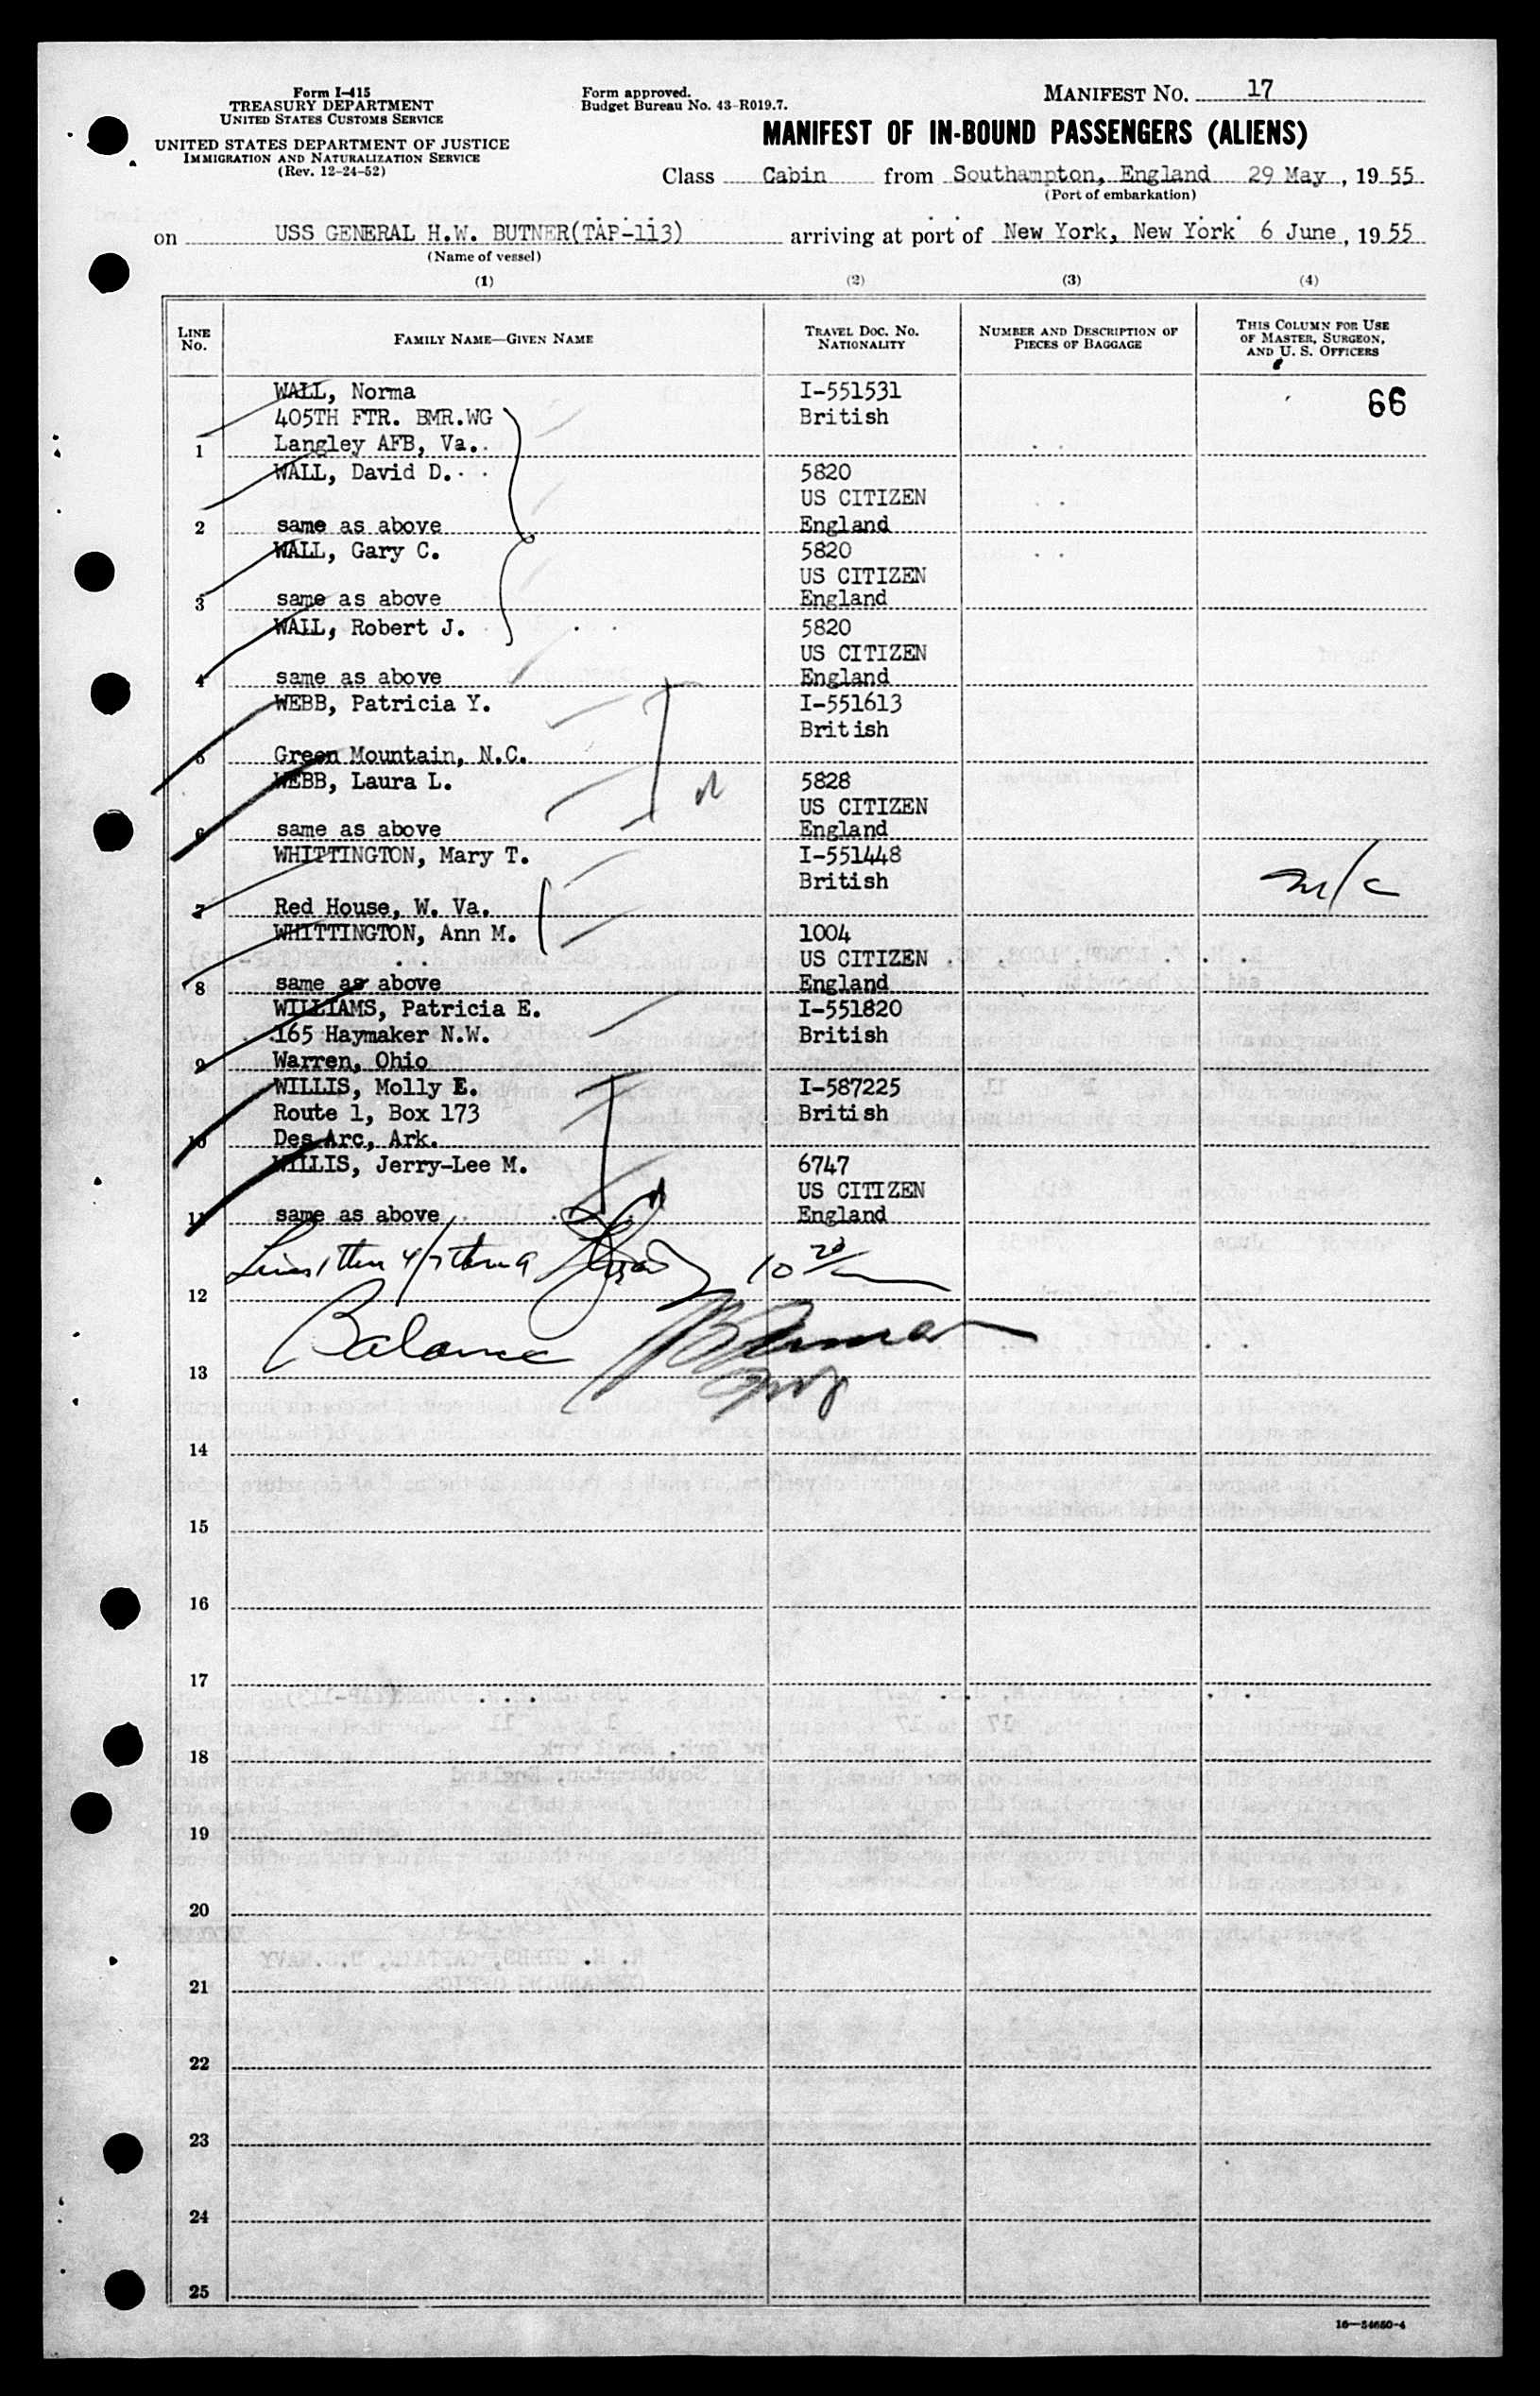 Form I-415
TREASURY DEPARTMENT
UNITED STATES CUSTOMS SERVICE
UNITED STATES DEPARTMENT OF JUSTICE
IMMIGRATION AND NATURALIZATION SERVICE
(Rev. 12-24-52)
Form approved.
Budget Bureau No. 43-R019.7.
MANIFEST NO. 17
MANIFEST OF IN-BOUND PASSENGERS (ALIENS)
Class Cabin from Southampton, England 29 May, 1955
(Port of embarkation)
on USS GENERAL H.W. BUTNER(TAP-113) arriving at port of New York, New York 6 June, 1955
(Name of vessel)
(1) (2) (3) (4)
LINE NO.
FAMILY NAME—GIVEN NAME
TRAVEL DOC. NO. NATIONALITY
NUMBER AND DESCRIPTION OF PIECES OF BAGGAGE
THIS COLUMN FOR USE OF MASTER, SURGEON, AND U. S. OFFICERS
WALL, Norma I-551531 66
405TH FTR. BMR.WG British
1 Langley AFB, Va.
WALL, David D. 5820
US CITIZEN
2 same as above England
WALL, Gary C. 5820
US CITIZEN
3 same as above England
WALL, Robert J. 5820
US CITIZEN
4 same as above England
WEBB, Patricia Y. I-551613
British
5 Green Mountain, N.C.
WEBB, Laura L. 5828
US CITIZEN
6 same as above England
WHITTINGTON, Mary T. I-551448
British
7 Red House, W. Va.
WHITTINGTON, Ann M. 1004
US CITIZEN
8 same as above England
WILLIAMS, Patricia E. I-551820
165 Haymaker N.W. British
9 Warren, Ohio
WILLIS, Molly E. I-587225
Route 1, Box 173 British
10 Des Arc, Ark.
WILLIS, Jerry-Lee M. 6747
US CITIZEN
11 same as above England
Lines 1 thru 4/7 thru 9
12
Balance
13
14
15
16
17
18
19
20
21
22
23
24
25
16—54650-4